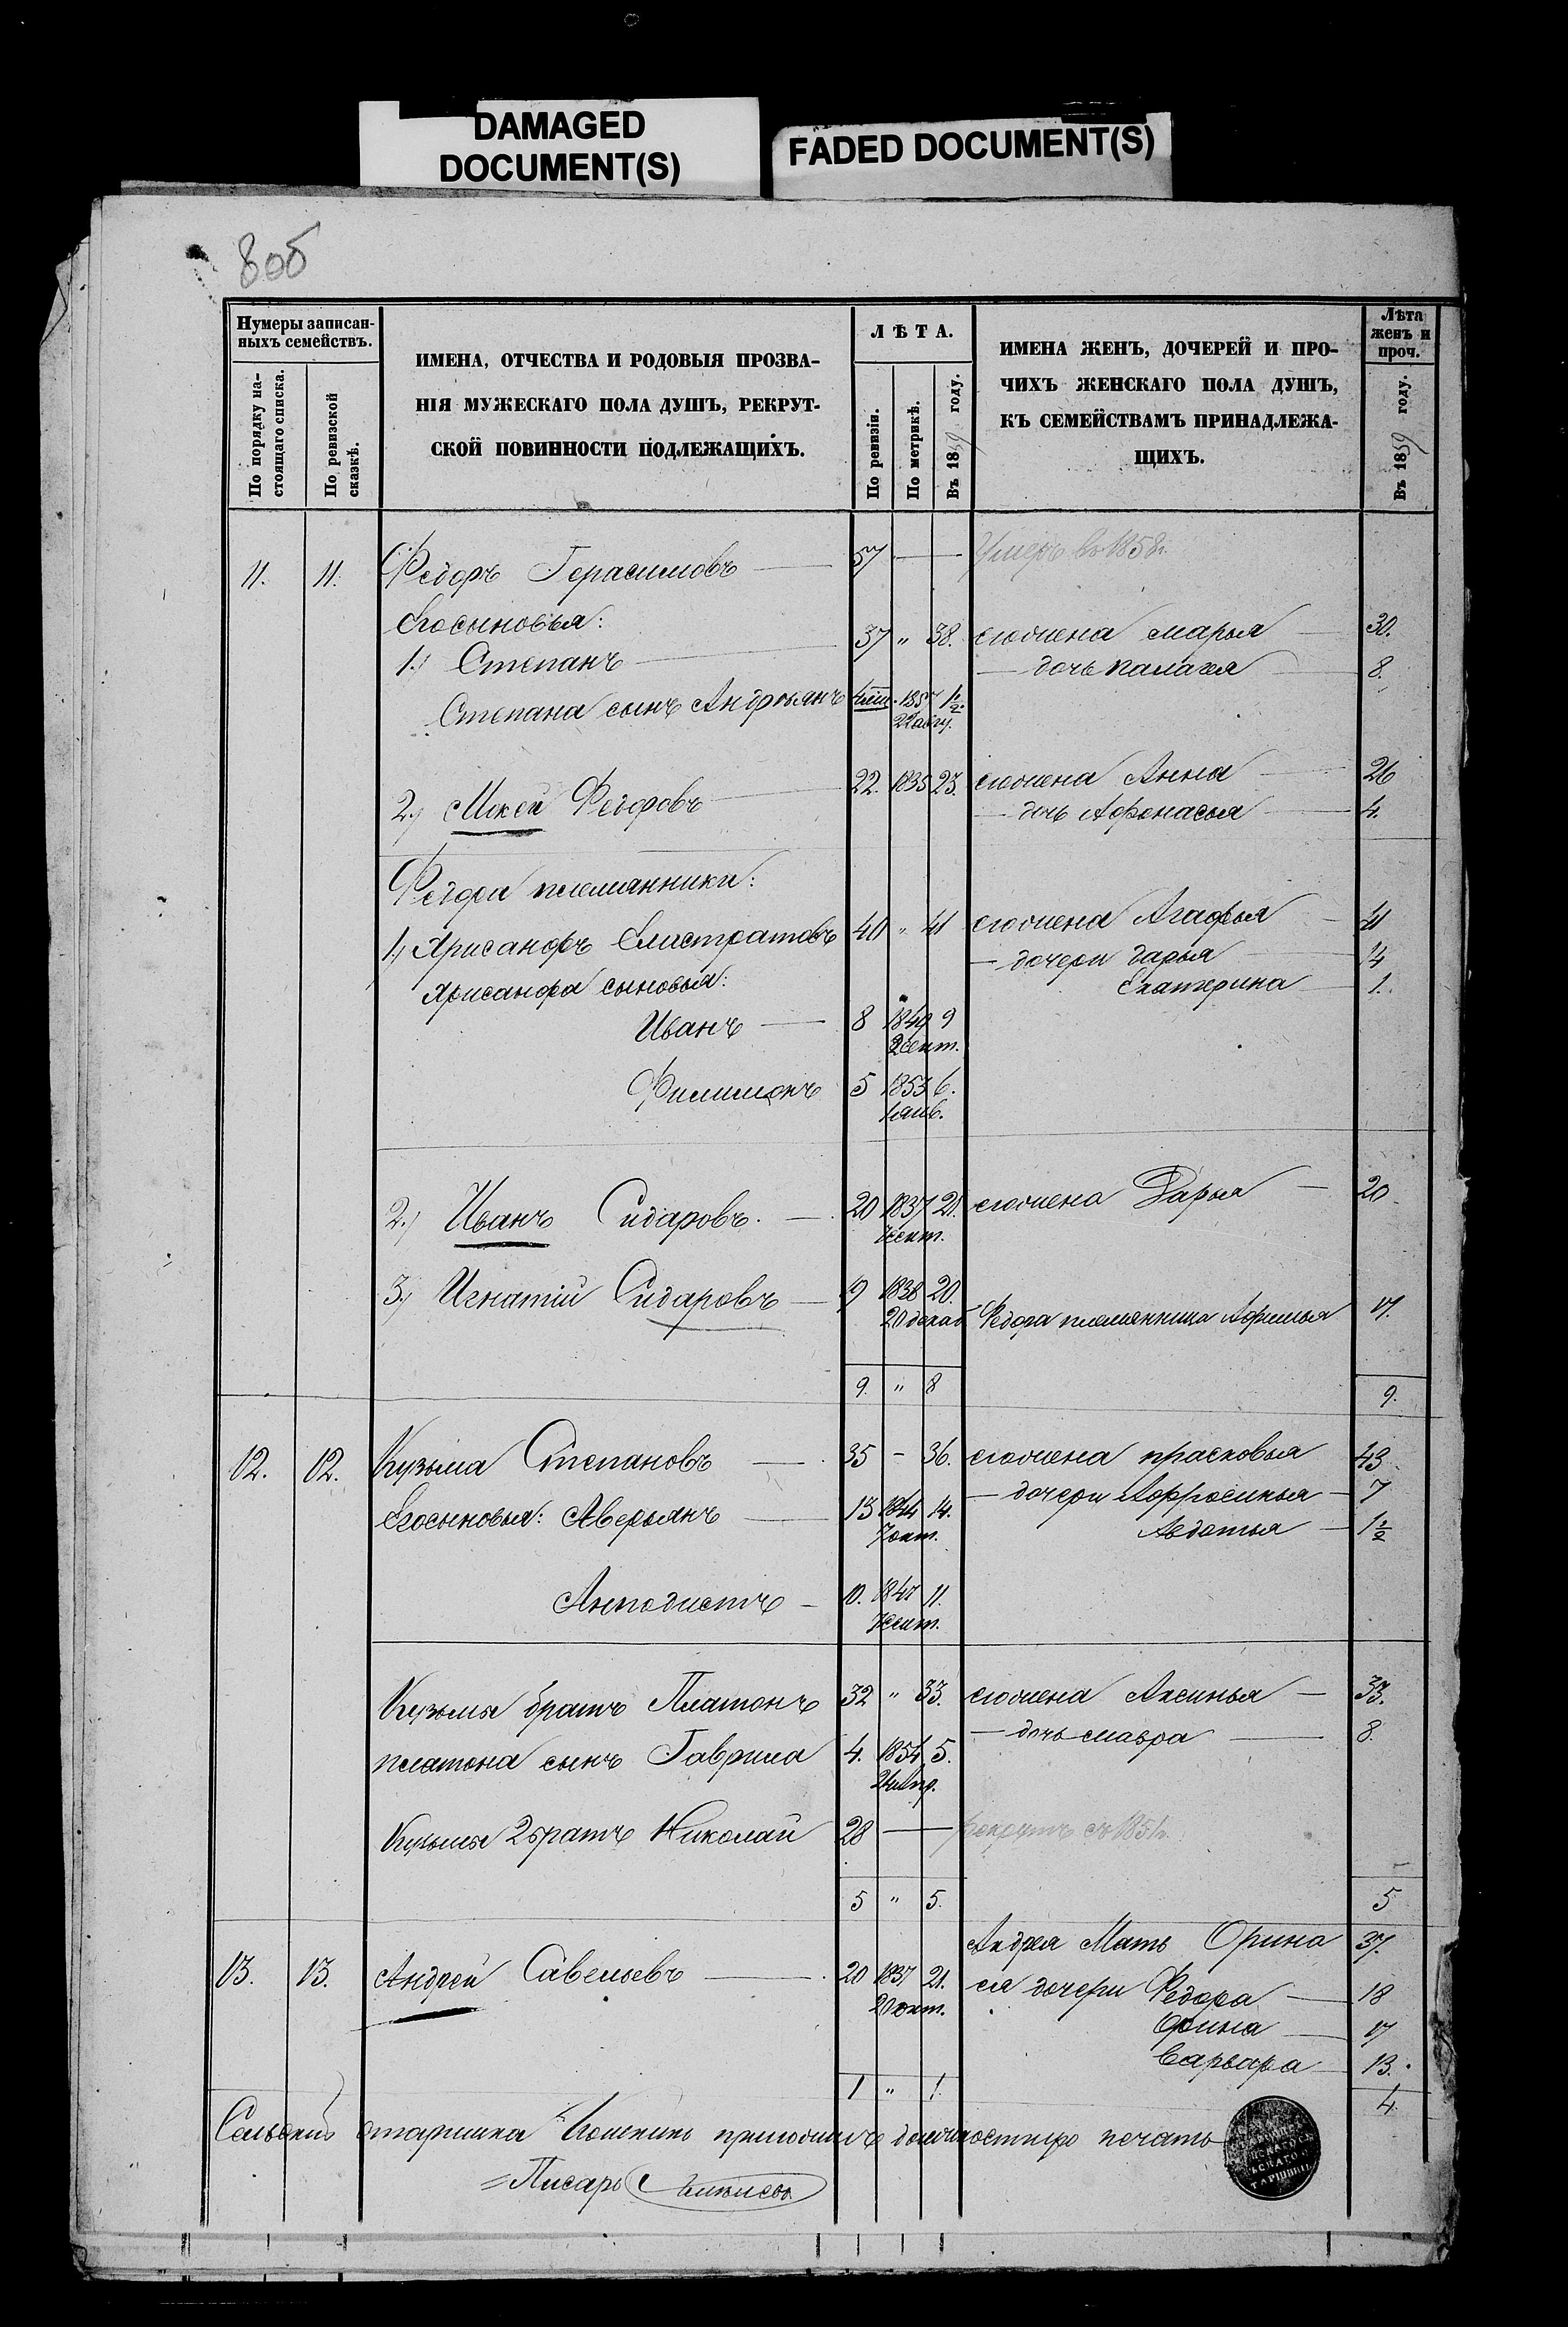 DAMAGED
DOCUMENT(S)
FADED DOCUMENT(S)
80б
Нумеры записан-
ныхъ семействъ.
По порядку на-
стоящаго списка.
По ревизской
сказкѣ.
ИМЕНА, ОТЧЕСТВА И РОДОВЫЯ ПРОЗВА-
НІЯ МУЖЕСКАГО ПОЛА ДУШЪ, РЕКРУТ-
СКОЙ ПОВИННОСТИ ПОДЛЕЖАЩИХЪ.
ЛѢТА.
По ревизіи.
По метрикѣ.
Въ 1859 году.
ИМЕНА ЖЕНЪ, ДОЧЕРЕЙ И ПРО-
ЧИХЪ ЖЕНСКАГО ПОЛА ДУШЪ,
КЪ СЕМЕЙСТВАМЪ ПРИНАДЛЕЖА-
ЩИХЪ.
Лѣта
женъ и
проч.
Въ 1859 году.
11. 11. Федоръ Герасимовъ — 57 — Умеръ въ 1858г.
Егосыновья:
1.) Степанъ — 37 " 38. егожена Марья — 30.
— дочь Палагея — 8.
Степана сынъ Андреянъ 4мѣс. 1857 1½.
22 авгу.
2.) Мокей Федоровъ — 22. 1835 23. егожена Анна — 26
— дочь Афонасья — 4.
Федора племянники:
1.) Хрисанфъ Елистратовъ 40 " 41 егожена Агафья — 41
— дочери Дарья — 14
Хрисанфа сыновья: Екатерина — 1.
Иванъ — 8 1849 9
2 сент.
Филимонъ 5 1853 6.
1 янв.
2.) Иванъ Сидаровъ. — 20 1837 21. егожена Дарья — 20
7 сент.
3.) Игнатій Сидаровъ — 19 1838 20.
20 декаб Федора племянница Афимья 17.
9. " 8 9.
12. 12. Кузьма Степановъ — 35 — 36. егожена Прасковья 43
— дочери Афросинья — 7
Егосыновья: Аверьянъ — 13 1844 14. Авдотья — 1½
7 окт.
Анподистъ — 10. 1847 11.
7 сент.
Кузьмы братъ Платонъ 32 " 33. егожена Аксинья — 33.
— дочь Мавра — 8.
Платона сынъ Гаврила 4. 1854 5.
Кузьмы 2 братъ Николай 28 — рекрутъ съ 1851г.
5 " 5. 5
Андрея Мать Орина 37.
13. 13. Андрей Савельевъ — 20 1837 21. ея дочери Федора — 18
20 окт. Орина — 17
Варвара — 13.
1 " 1. 4.
Сельскій старшина приложилъ должностную печать
Писарь